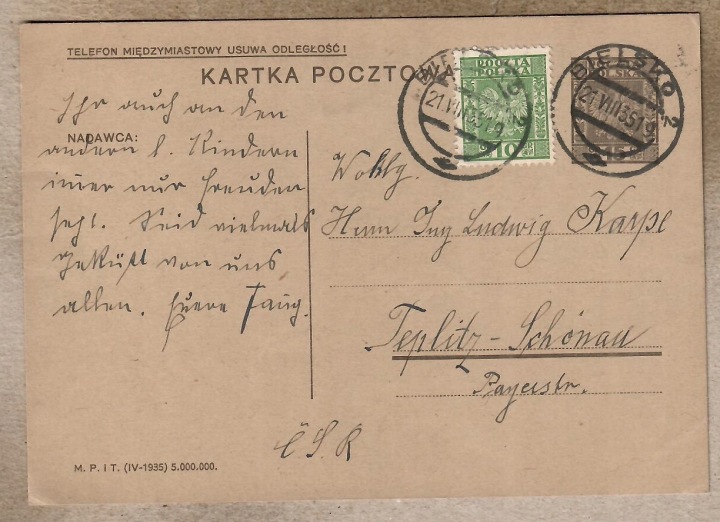 TELEFON MIĘDZYMIASTOWY USUWA ODLEGŁOŚĆ!
KARTKA POCZTOWA
POCZTA
POLSKA
10
BIELSKO 2
21.VIII.35 19
POLSKA
15
BIELSKO 2
21.VIII.35 19
NADAWCA:
Ihr auch an den
andern l. Kindern
immer nur Freuden
seht. Seid vielmals
geküßt von uns
allen. Euere
Wohlg.
Herrn Ing Ludwig Karpe
Teplitz-Schönau
Payerstr.
ČSR
M. P. i T. (IV-1935) 5.000.000.